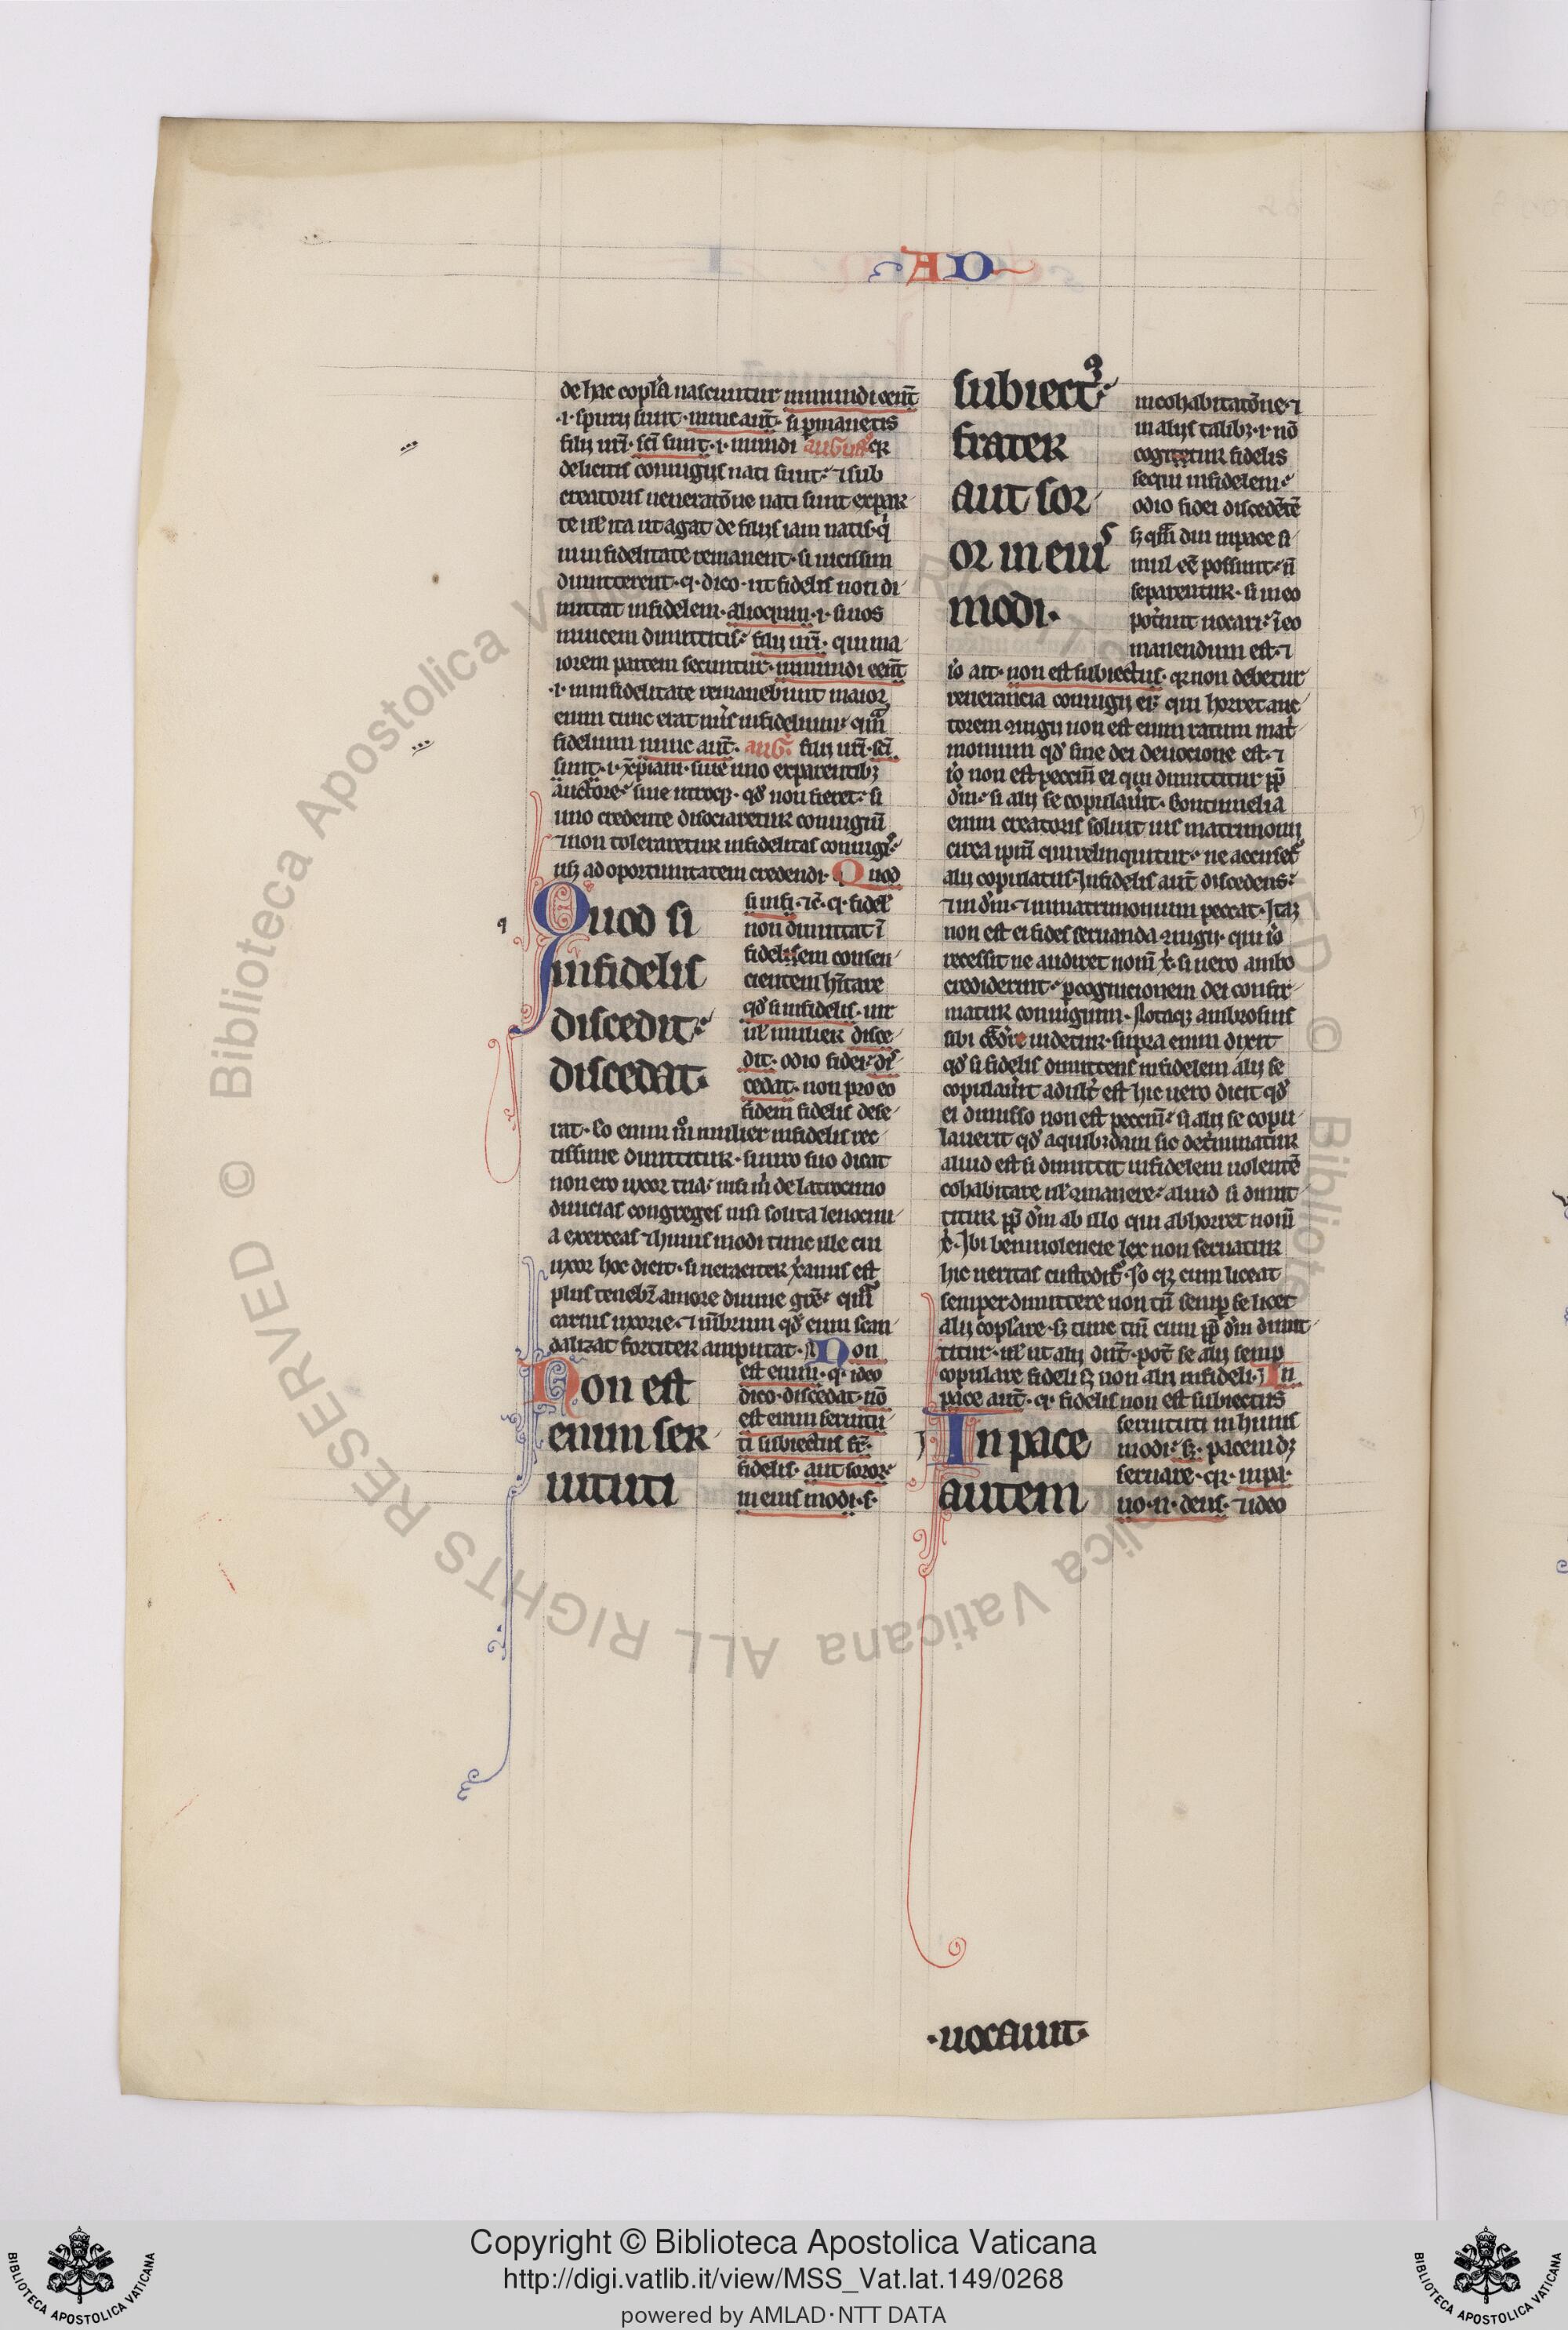 AD
de hac copl'a nascuntur inmundi eēnt
.i. spurij sunt. nunc aūt. si pmanetis
filij urī. scī sunt. i. mundi augus. qr
de licitis coniugijs nati sunt. ⁊ sub
creatoris ueneratōne nati sunt ex par
te ul' ita ut agat de filijs iam natis. q'
in infidelitate remanent. si uicissim
dimitterent. q. dico. ut fidelis non di
mittat infidelem. alioquin. i. si uos
inuicem dimittitis. filij urī. qui ma
iorem partem secuntur. inmundi eēnt
.i. in infidelitate remanebunt maior
enim tunc erat nūs infidelium. qm̄
fidelium nunc aūt. aug. filij urī. scī
sunt. i. x̄piani. siue uno ex parentibȝ
auctore. siue utroqȝ. qd' non fieret. si
uno credente disociaretur coniugiū
⁊ non toleraretur infidelitas coniugis.
usqȝ ad oportunitatem credendi. Quod
Quod si
infidelis
discedit.
discedat.
si infi. ⁊c̄. q. fidel'
non dimittat ī
fidelem consen
cientem h̄itare
qd' si infidelis. uir
ul' mulier disce
dit. odio fidei. dis
cedat. non pro eo
fidem fidelis dese
rat. Eo enim mō mulier infidelis rec
tissime dimittitur. si uiro suo dicat
non ero uxor tua. nisi m' de latrocinio
diuicias congreges nisi solita lenocini
a exerceas ⁊ huius modi tunc ille cui
uxor hoc dicit. si ueraciter x̄anus est
plus tenebȝ amore diuine grē. qm̄
carnis uxorie. ⁊ m̄brum qd' eum scan
dalizat fortiter amputat. Non
Non est
enim ser
uituti
est enim. q. ideo
dico. discedat. nō
est enim seruitu
ti subiectus fr̄.
fidelis. aut soror.
in eius modi. s.
subiectȝ
frater
aut sor
or in eius
modi.
in cohabitatōne. ⁊
in alijs talibȝ. i. nō
cogitetur fidelis
sequi infidelem.
odio fidei discedētē
sȝ qm̄ diu in pace si
mul eē possunt. n̄
separentur. si in eo
pot'unt uocari. ī eo
manendum est. ⁊
iō ait. non est subiectus. qr non debetur
reuerancia coniugij ei. qui horret auc
torem 9iugij non est enim ratum mat'
monium qd' sine dei deuocione est. ⁊
iō non est peccm̄ ei qui dimittitur ꝓp
dm̄. si alij se copulau'it. Contumelia
enim creatoris soluit ius matrimonij
circa ipm̄ qui relinquitur. ne accuset'
alij copulatus. Infidelis aūt discedens.
⁊ in dm̄. ⁊ in matrimonium peccat. Itaȝ
non est ei fides seruanda 9iugij. qui iō
recessit ne audiret nom̄ x̄. si uero ambo
crediderint. ꝑ cognicionem dei confir
matur coniugium. Notaqȝ ambrosius
sibi cd̄ire uidetur. supra enim dixit
qd' si fidelis dimittens infidelem alij se
copulau'it adult' est hic uero dicit qd'
ei dimisso non est peccm̄. si alij se copu
lauerit qd' a quibȝdam sic det'minatur
aliud est si dimittit infidelem uolentē
cohabitare ul' 9manere. aliud si dimit
titur ꝓp dm̄ ab illo qui abhorret nom̄
x̄. Ibi beniuolencie lex non seruatur
hic ueritas custodit'. Io qr cum liceat
semper dimittere non tn̄ semꝑ se licet
alij coplare. sȝ tunc tm̄ cum ꝓp dm̄ dimit
titur. ul' ut alij dnt. pot' se alij semp
copulare fideli sȝ non alij infideli. In
pace aūt. qr fidelis non est subiectus
In pace
autem
seruituti in huius
modi. sȝ. pacem dȝ
seruare. qr. in pa.
uo. n. deus. ⁊ ideo
.uocauit.
Copyright © Biblioteca Apostolica Vaticana
http://digi.vatlib.it/view/MSS_Vat.lat.149/0268
powered by AMLAD·NTT DATA